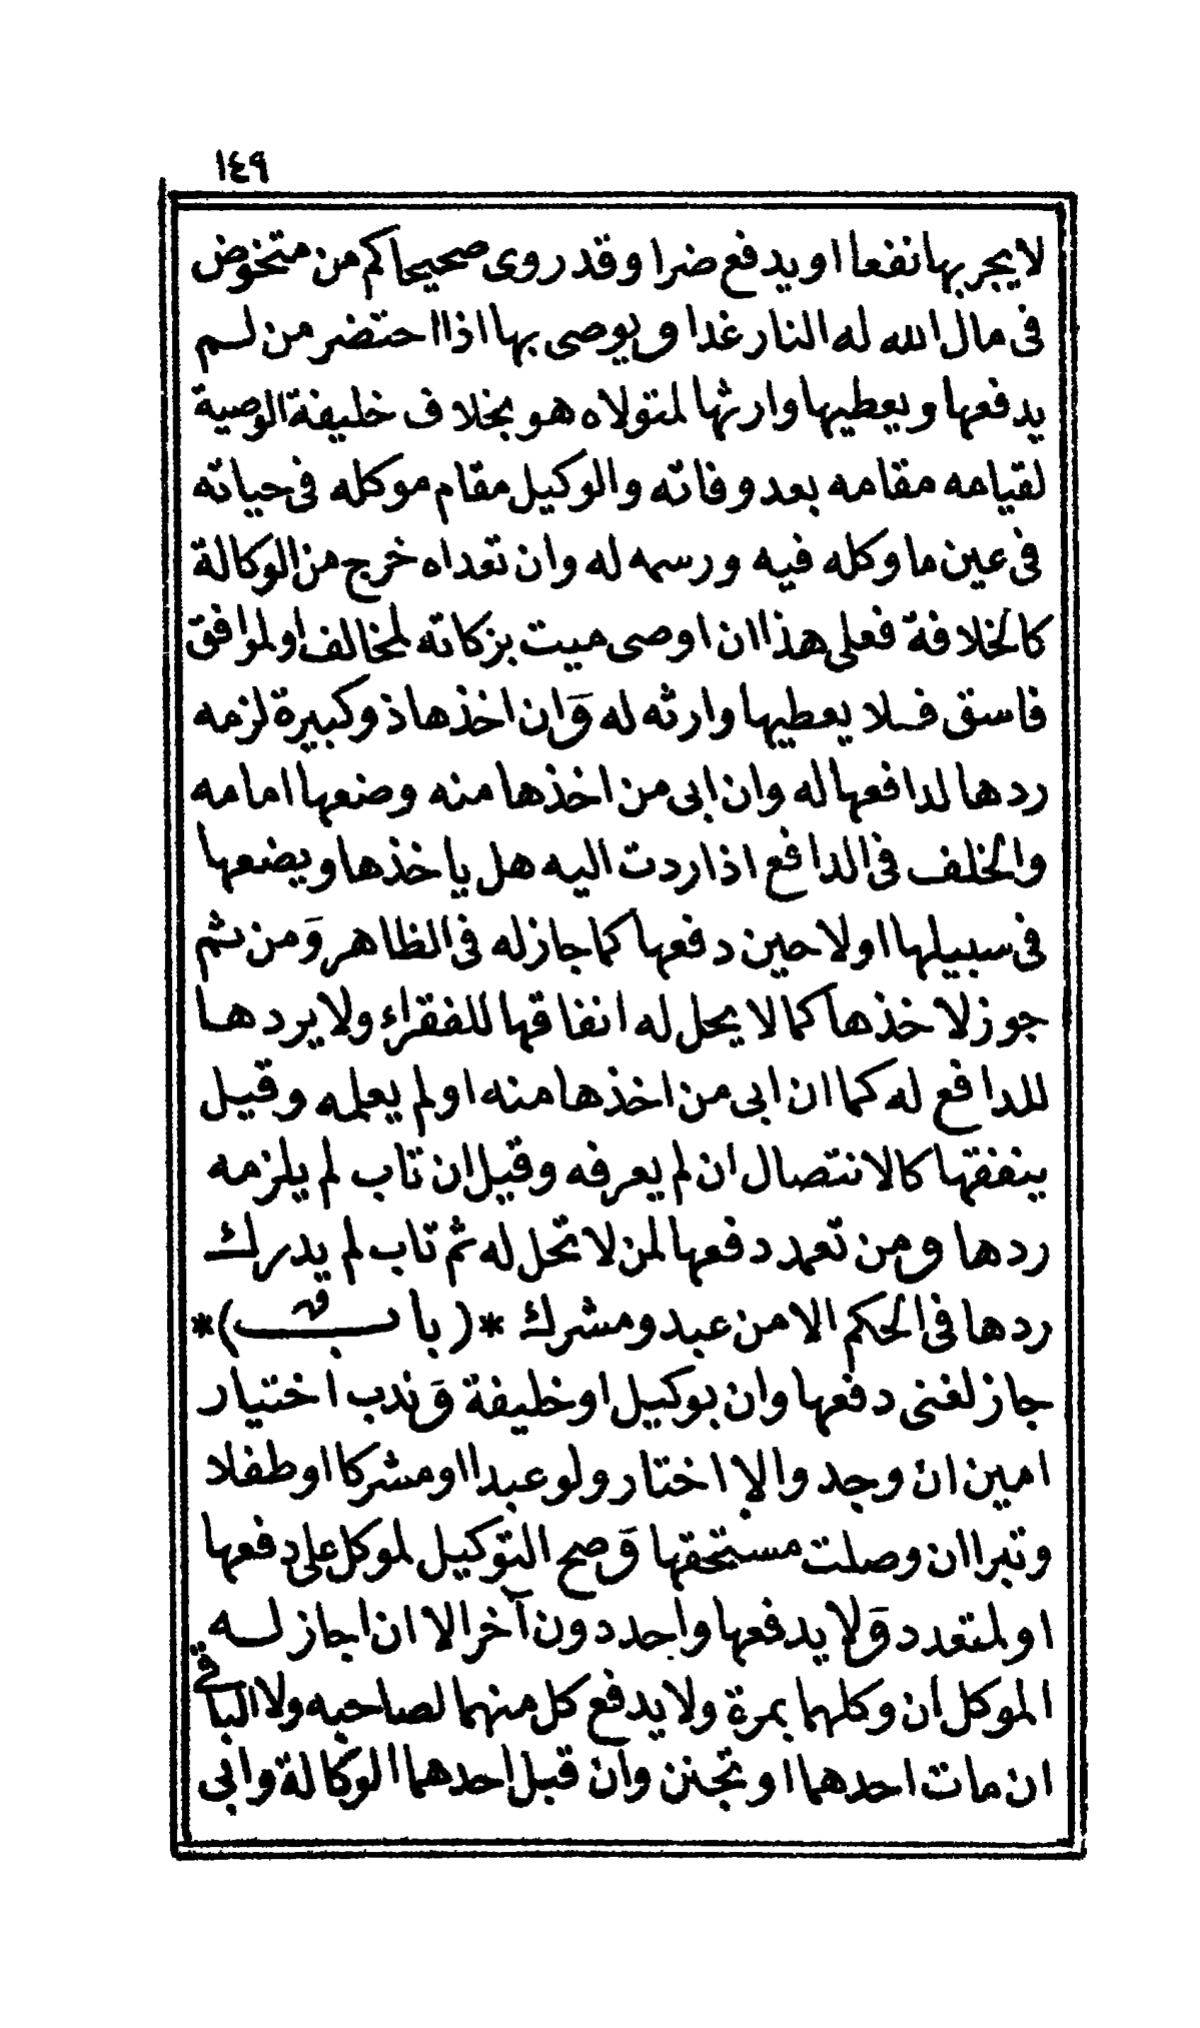 ١٤٩
لا يجر بها نفعا او يدفع ضرا وقد روى صحيحا كم من متخوض
فى مال الله له النار غدا ويوصى بها اذا احتضر من لم
يدفعها ويعطيها وارثها لمتولاه هو بخلاف خليفة الوصية
لقيامه مقامه بعد وفاته والوكيل مقام موكله فى حياته
فى عين ما وكله فيه ورسمه له وان تعداه خرج من الوكالة
كالخلافة فعلى هذا ان اوصى ميت بزكاته لمخالف او لموافق
فاسق فلا يعطيها وارثه له وَان اخذها ذو كبيرة لزمه
ردها لدافعها له وان ابى من اخذها منه وضعها امامه
والخلف فى الدافع اذا ردت اليه هل ياخذها ويضعها
فى سبيلها اولا حين دفعها كما جاز له فى الظاهر وَمن ثم
جوز لاخذها كما لا يحل له انفاقها للفقراء ولا يردها
للدافع له كما ان ابى من اخذها منه او لم يعلمه وقيل
ينفقها كالانتصال ان لم يعرفه وقيل ان تاب لم يلزمه
ردها ومن تعمد دفعها لمن لا تحل له ثم تاب لم يدرك
ردها فى الحكم الا من عبد ومشرك *(باب)*
جاز لغنى دفعها وان بوكيل او خليفة وَندب اختيار
امين ان وجد والا اختار ولو عبدا او مشركا او طفلا
وتبرا ان وصلت مستحقها وَصح التوكيل لموكل على دفعها
او لمتعدد وَلا يدفعها واحد دون آخر الا ان اجاز له
الموكل ان وكلهما بمرة ولا يدفع كل منهما لصاحبه ولا الباقى
ان مات احدهما او تجنن وان قبل احدهما الوكالة وابى